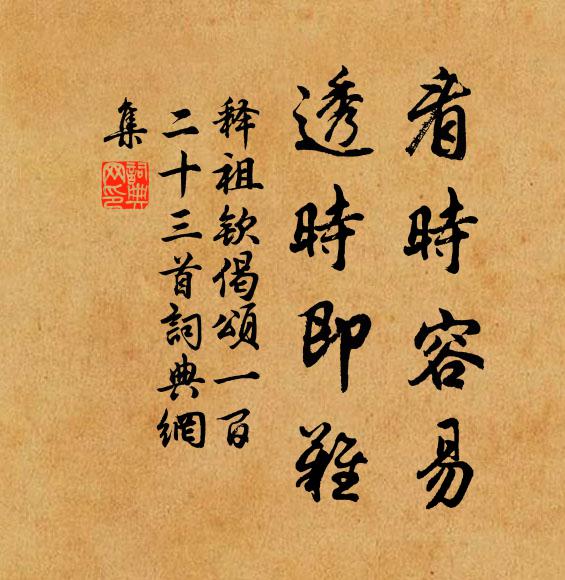 看時容易
透時即難
释祖钦偈頌一百
二十三首詞典網
集
詞典
网印